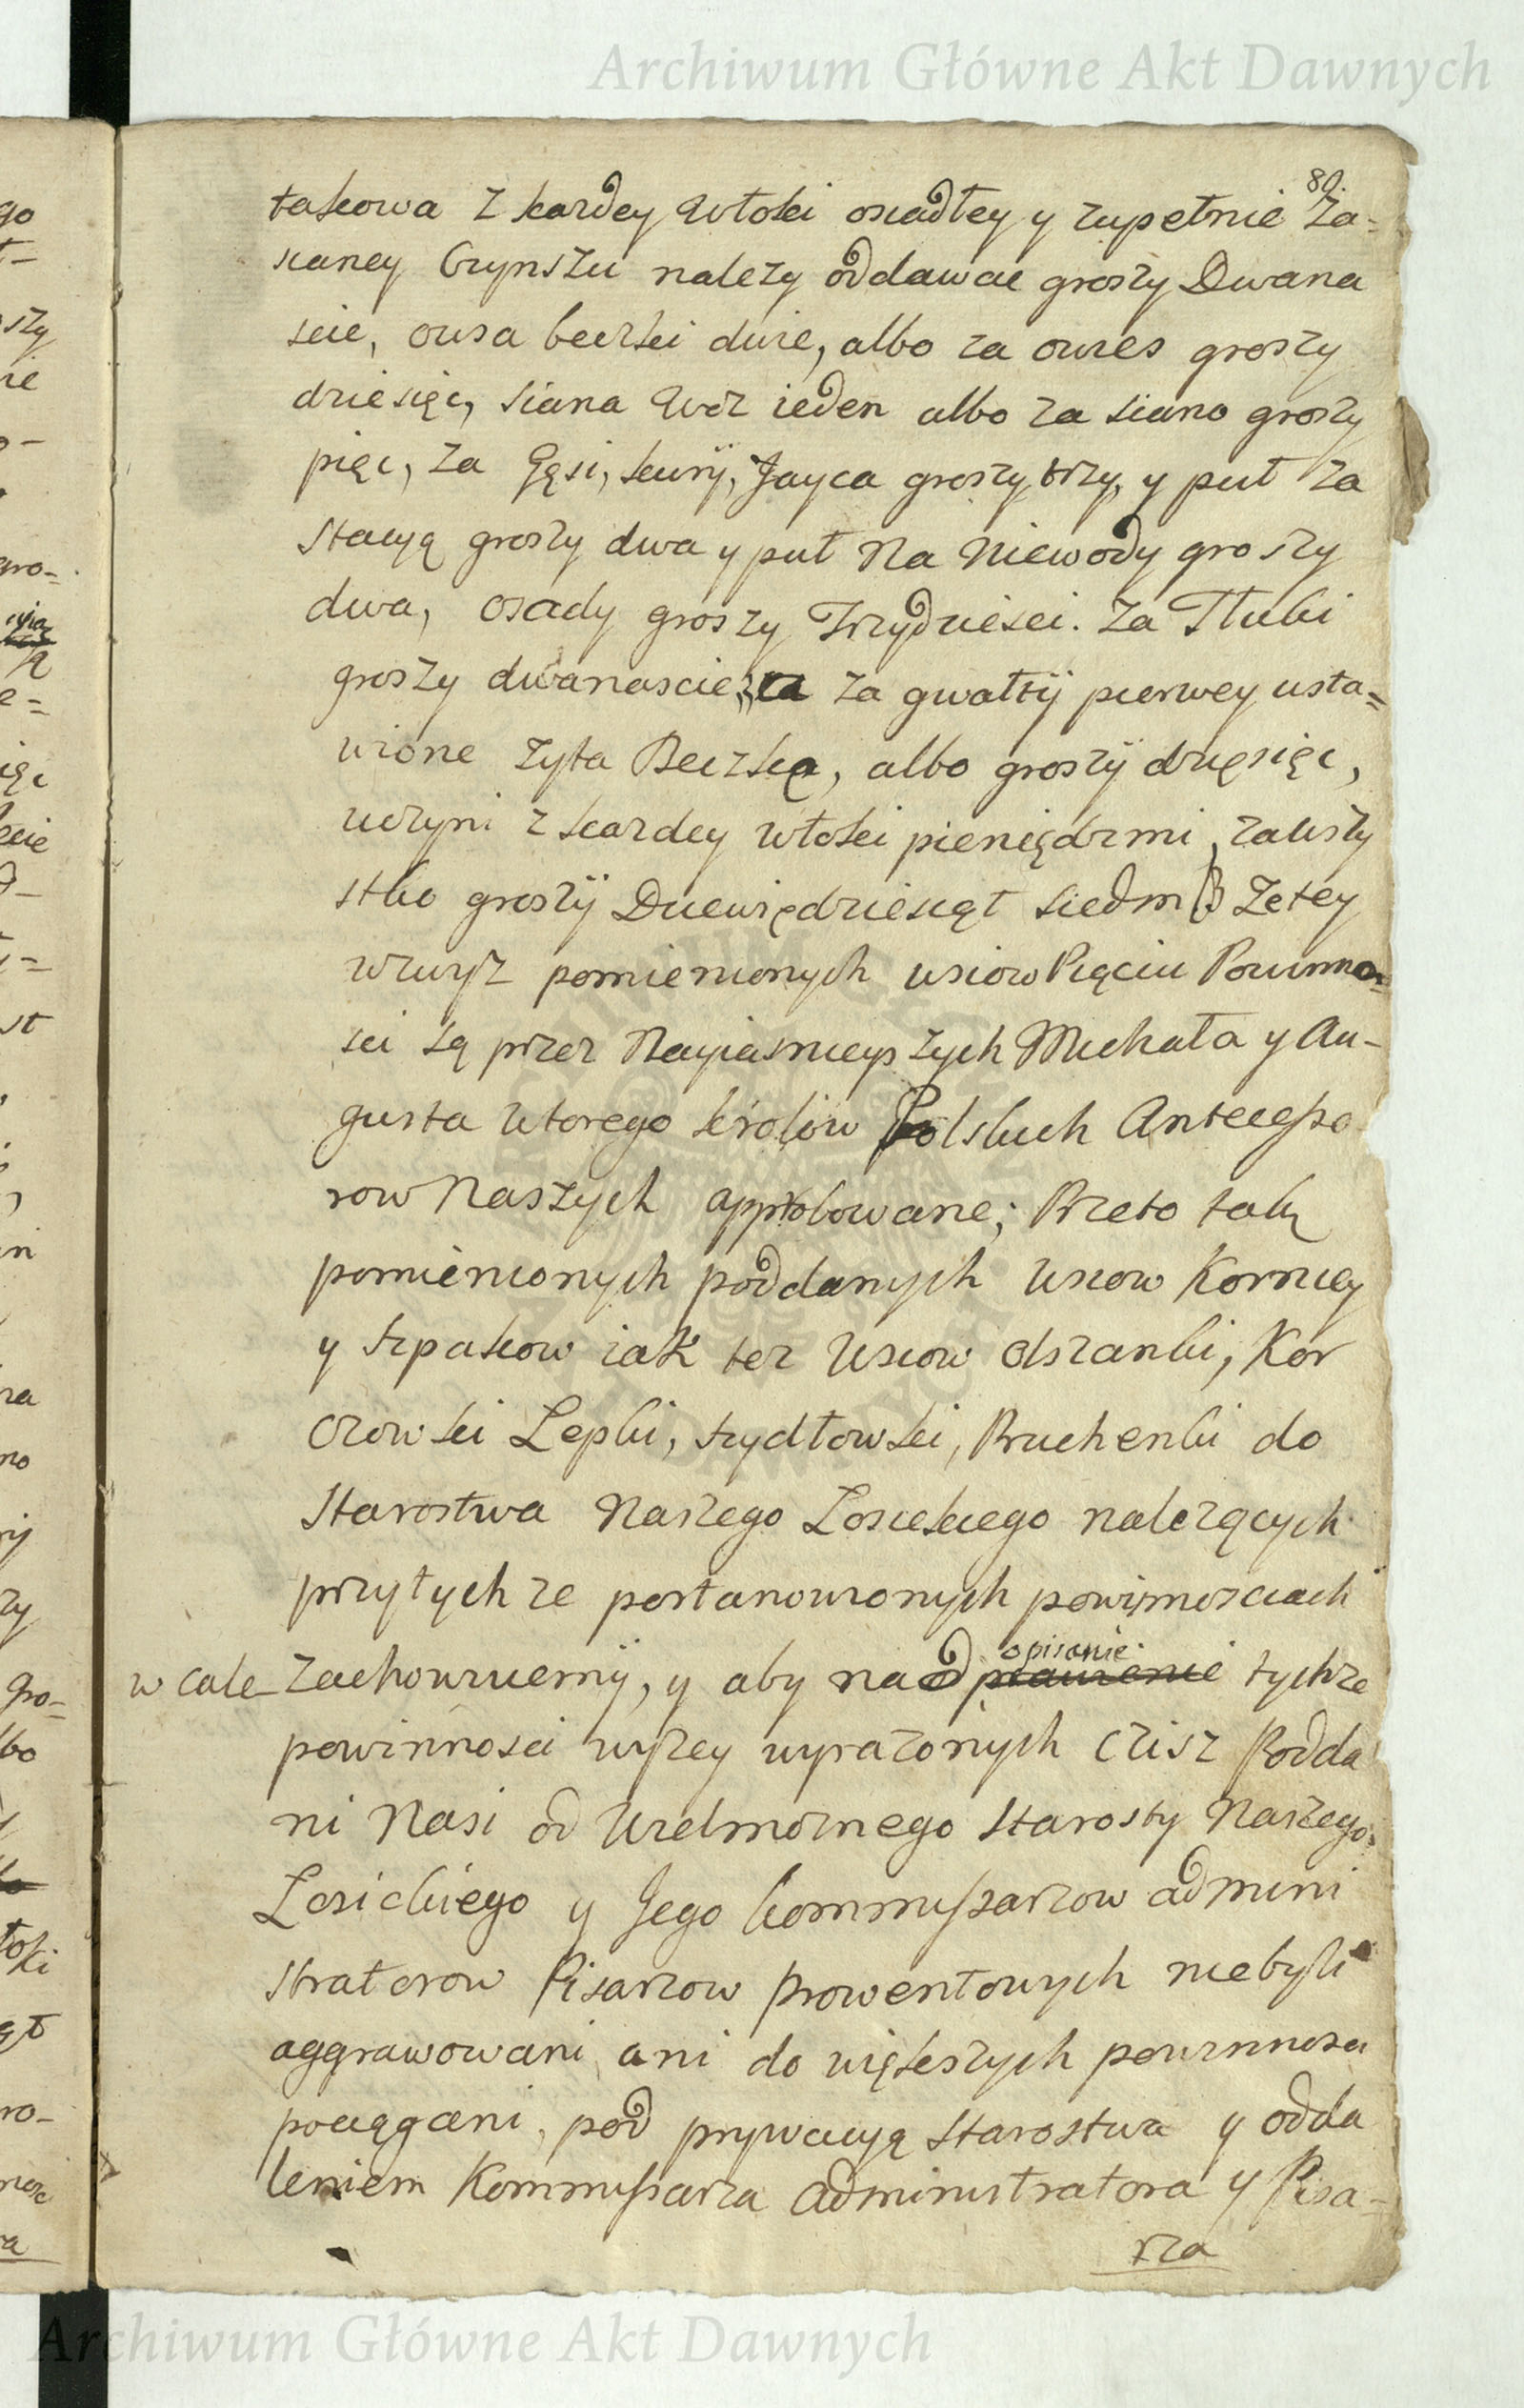 Archiwum Główne Akt Dawnych
80.
takowa z kazdey Włoki osiadłey y zupełnie Za=
sianey Czynszu nalezy oddawac groszy Dwana
scie, owsa beczki dwie, albo za owies groszy
dziesięc, siana Woz ieden albo za siano groszy
pięc, za Gęsi, kury, Jayca groszy trzy, y puł za
Stacyą groszy dwa y puł Na Niewody groszy
dwa, osady groszy Trzydziesci. Za Tłuki
groszy dwanascie, za gwałty pierwey usta=
wione zyta Beczkę, albo groszy dzięsięc,
uczyni z kazdey włoki pieniędzmi, za wszy
stko groszy Dziewiędziesiąt siedm Ze tey
wzwyz pomienionych wsiow Pięciu Powinno=
sci są przez Nayiasnieyszych Michała y Au-
gusta Wtorego krolow Polskich Antecesso
row Naszych approbowane; Przeto tak
pomienionych poddanych wsiow Korniey
y Szpakow iak tez wsiow Olszanki, Kor
czowki Lepki, Szydłowki, Pruchenki do
Starostwa Naszego Łosickiego nalezących
przy tychze postanowionych powinnosciach
w cale zachowuiemy, y aby nad opisanie prawienie tychze
powinnosci wyzey wyrazonych Cisz Podda
ni Nasi od Wielmoznego Starosty Naszego
Łosickiego y Jego kommissarzow admini
stratorow Pisarzow prowentowych niebyli
aggrawowani ani do większych powinnosci
pociągani, pod prywacyą Starostwa y odda
leniem Kommissarza administratora y Pisa-
rza
Archiwum Główne Akt Dawnych